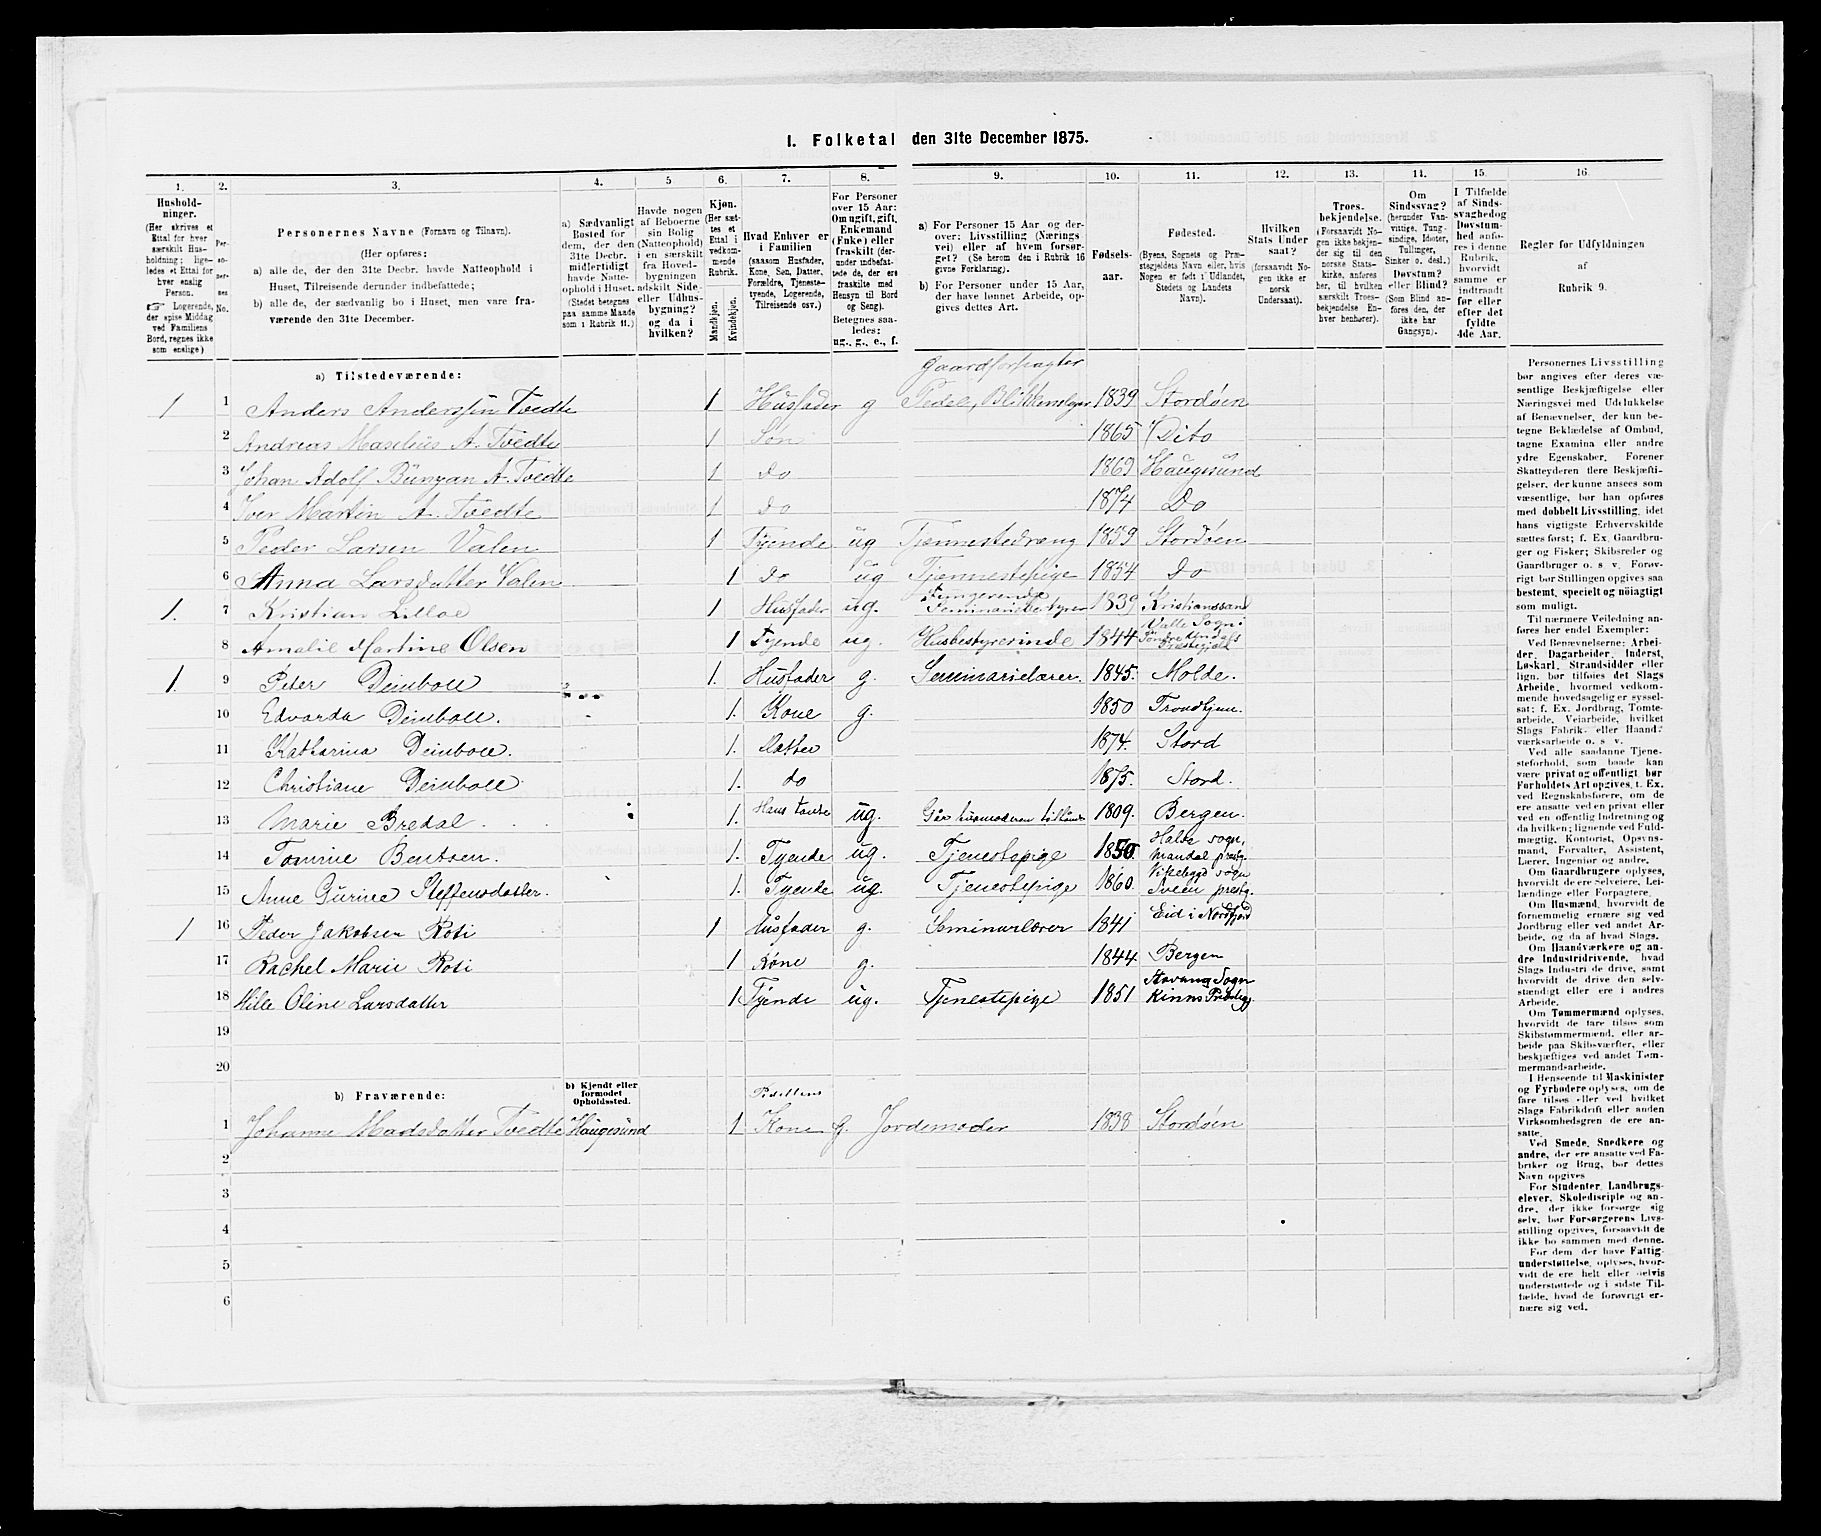 1. Folketal den 31te December 1875.
1. 2. 3. 4. 5 6. 7. 8. 9. 10. 11. 12. 13. 14. 15. 16.
Hushold-
ninger.
(Her skrives et
Ettal for hver
særskilt Hus-
holdning; lige-
ledes et Ettal for
hver enslig
Person.
☞ Logerende,
der spise Middag
ved Familiens
Bord, regnes ikke
som enslige)
Per-
so-
ner-
nes
No.
Personernes Navne (Fornavn og Tilnavn).
(Her opføres:
a) alle de, der den 31te Decbr. havde Natteophold i
Huset, Tilreisende derunder indbefattede;
b) alle de, der sædvanlig bo i Huset, men vare fra-
værende den 31te December.
a) Sædvanligt
Bosted for
dem, der den
31te Decbr.
midlertidigt
havde Natte-
ophold i Huset.
(Stedet betegnes
paa samme Maade
som i Rubrik 11.)
Havde nogen
af Beboerne
sin Bolig
(Natteophold)
i en særskilt
fra Hoved-
bygningen
adskilt Side-
eller Udhus-
bygning?
og da i
hvilken?
Kjøn.
(Her sæt-
tes et
Ettal i
vedkom-
mende
Rubrik.
Mandkjøn.
Kvindekjøn.
Hvad Enhver er
i Familien
(saasom Husfader,
Kone, Søn, Datter,
Forældre, Tjeneste-
tyende, Logerende,
Tilreisende osv.)
For Personer
over 15 Aar:
Om ugift, gift,
Enkemand
(Enke) eller
fraskilt (der-
under indbefat-
tede de, der ere
fraskilte med
Hensyn til Bord
og Seng).
Betegnes saa-
ledes:
ug., g., e., f.
a) For Personer 15 Aar og der-
over: Livsstilling (Nærings
vei) eller af hvem forsør-
get? (Se herom den i Rubrik 16
givne Forklaring).
b) For Personer under 15 Aar,
der have lønnet Arbeide, op-
gives dettes Art.
Fødsels-
aar.
Fødested.
(Byens, Sognets og Præ-
stegjeldets Navn eller, hvis
Nogen er født i Udlandet,
Stedets og Landets
Navn).
Hvilken
Stats Under
saat?
(forsaavidt No-
gen ikke er
norsk
Undersaat).
Troes-
bekjendelse.
(Forsaavidt No-
gen ikke bekjen-
der sig til den
norske Stats-
kirke, anføres
her, til hvilken
særskilt Troes-
bekjendelse En-
hver henhører).
Om
Sindssvag?
(herunder Van-
vittige, Tung-
sindige, Idioter,
Tullinger,
Sinker o. desl.)
Døvstum?
eller Blind?
(Som Blind an-
føres den, der
ikke har
Gangsyn).
I Tilfælde
af Sinds-
svaghedog
Døvstum-
hed anfø-
res i denne
Rubrik,
hvorvidt
samme er
indtraadt
før eller
efter det
fyldte
4de Aar.
Regler for Udfyldningen
af
Rubrik 9.
a) Tilstedeværende:
Gaardforpagter
1 1 Anders Anderssen Tvedte 1 Husfader g Pedel, Blikkenslager 1839 Stordöen
2 Andreas Maselius A. Tvedte 1 Søn 1865 Dito
3 Johan Adolf Bünyan A. Tvedte 1 do 1869 Haugesund
4 Iver Martin A. Tvedte 1 do 1874 Do
5 Peder Larsen Valen 1 Tyende ug Tjennestedræng 1859 Stordöen
6 Anna Larsdatter Valen 1 do ug Tjennestepige 1854 Do
1. 7 Kristian Lilloe 1 Husfader ug. Fungerende Seminariebestyrer 1839 Kristianssand
8 Amalie Martine Olsen 1 Tyende ug. Husbestyrerinde 1844 Valle Sogn i Söndre Undals Præstegjeld
1. 9 Peter Deinboll 1. Husfader g. Seminarielærer. 1845. Molde.
10 Edvarda Deinboll. 1. Kone g. 1850 Trondhjem.
11 Katharina Deinboll. 1. Datter 1874. Stord
12 Christiane Deinboll 1. do 1875. Stord.
13 Marie Bredal. 1. Hans tante ug. Gaar husmoderen tilhaande 1809. Bergen.
14 Tomine Bentsen. 1. Tyende ug. Tjenestepige 1850. Halse sogn, Mandal prestg.
15 Anne Gurine Steffensdatter. 1. Tyende ug. Tjenestepige 1860. Vikebygd sogn Sveen prestg.
1 16 Peder Jakobsen Roti 1 Husfader g. Seminarlærer 1841 Eid i Nordfjord
17 Rachel Marie Roti 1 Kone g. 1844. Bergen
18 Hille Oline Larsdatter 1 Tyende ug. Tjenestepige 1851 Stavang Sogn Kinns Præstegj
19
20
b) Fraværende:
b) Kjendt eller
formodet
Opholdssted.
1 Johanne Madsdatter Tvedte Haugesund 1 Pedellens Kone g. Jordemoder 1838 Stordöen
2
3
4
5
6
Personernes Livsstilling
bør angives efter deres væ-
sentlige Beskjæftigelse eller
Næringsvei med Udelukkelse
af Benævnelser, der kun be-
tegne Beklædelse af Ombud,
tagne Examina eller andre
ydre Egenskaber. Forener
Skatteyderen flere Beskjæfti-
gelser, der kunne ansees som
væsentlige, bør han opføres
med dobbelt Livsstilling, idet
hans vigtigste Erhvervskilde
sættes først; f. Ex. Gaardbru-
ger og Fisker; Skibsreder og
Gaardbruger o. s. v. Forøv-
rigt bør Stillingen opgives saa
bestemt, specielt og nøiagtigt
som muligt.
Til nærmere Veiledning an-
føres her endel Exempler:
Ved Benævnelserne: Arbei-
der, Dagarbeider, Inderst,
Løskarl, Strandsidder eller
lign. bør tilføies det Slags
Arbeide, hvormed vedkom-
mende hovedsagelig er syssel-
sat; f. Ex. Jordbrug, Tomte-
arbeide, Veiarbeide, hvilket
Slags Fabrik- eller Haand-
værksarbeide o. s. v.
Ved alle saadanne Tjene-
steforhold, som baade kan
være privat og offentligt, bør
Forholdets Art opgives, t. Ex.
ved Regnskabsførere, om de
ere ansatte ved en privat eller
ved en offentlig Indretning og
da hvilken; lignende ved Fuld-
mægt, Kontorist, Opsyns-
mand, Forvalter, Assistent,
Lærer, Ingeniør og andre.
Om Gaardbrugere oplyses,
hvorvidt de ere Selveiere, Lei-
lændinge eller Forpagtere.
Om Husmænd, hvorvidt de
fornemmelig ernære sig ved
Jordbrug eller ved andet Ar-
beide, og da af hvad Slags.
Om Haandværkere og an-
dre Industridrivende, hvad
Slags Industri de drive, samt
hvorvidt de drive den selv-
stændigt eller ere i andres
Arbeide.
Om Tømmermænd oplyses,
hvorvidt de fare tilsøs som
Skibstømmermænd, eller ar-
beide paa Skibsværfter, eller
beskjæftiges ved andet Tøm-
mermandsarbeide.
I Henseende til Maskinister
og Fyrbødere oplyses, om de
fare tilsøs eller ved hvilket
Slags Fabrikdrift eller anden
Virksomhedsgren de ere an-
satte.
Ved Smede, Snedkere og
andre, der ere ansatte ved Fa-
briker og Brug, bør dettes
Navn opgives
For Studenter, Landbrugs-
elever, Skoledisciple og an-
dre, der ikke forsørge sig
selv, bør Forsørgerens Livs-
stilling opgives, forsaavidt de
ikke bo sammen med denne.
For dem, der have Fattig-
understøttelse, oplyses, hvor-
vidt de ere helt eller delvis
understøttede og i sidste Til-
fælde, hvad de forøvrigt er-
nære sig ved.